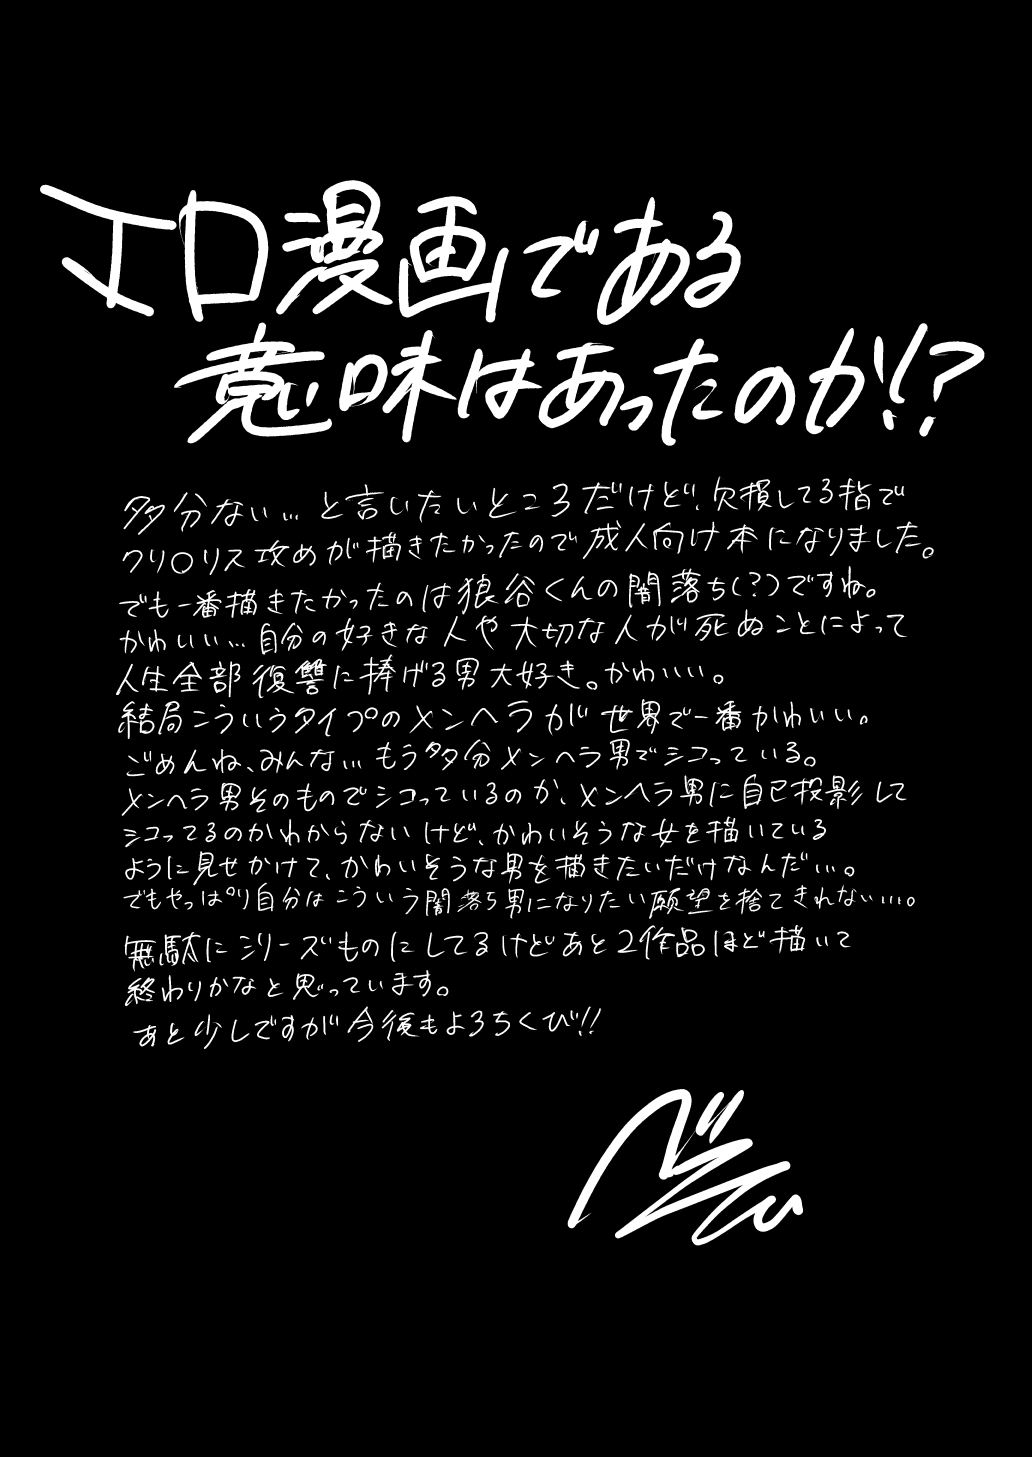 エロ漫画である
意味はあったのか!?
多分ない…と言いたいところだけど、欠損してる指で
クリ〇リス攻めが描きたかったので成人向け本になりました。
でも一番描きたかったのは狼谷くんの闇落ち(?)ですね。
かわいい…自分の好きな人や大切な人が死ぬことによって
人生全部復讐に捧げる男大好き。かわいい。
結局こういうタイプのメンヘラが世界で一番かわいい。
ごめんね、みんな…もう多分メンヘラ男でシコっている。
メンヘラ男そのものでシコっているのか、メンヘラ男に自己投影して
シコってるのかわからないけど、かわいそうな女を描いている
ように見せかけて、かわいそうな男を描きたいだけなんだ…。
でもやっぱり自分はこういう闇落ち男になりたい願望を捨てきれない…。
無駄にシリーズものにしてるけどあと2作品ほど描いて
終わりかなと思っています。
あと少しですが今後もよろちくび!!